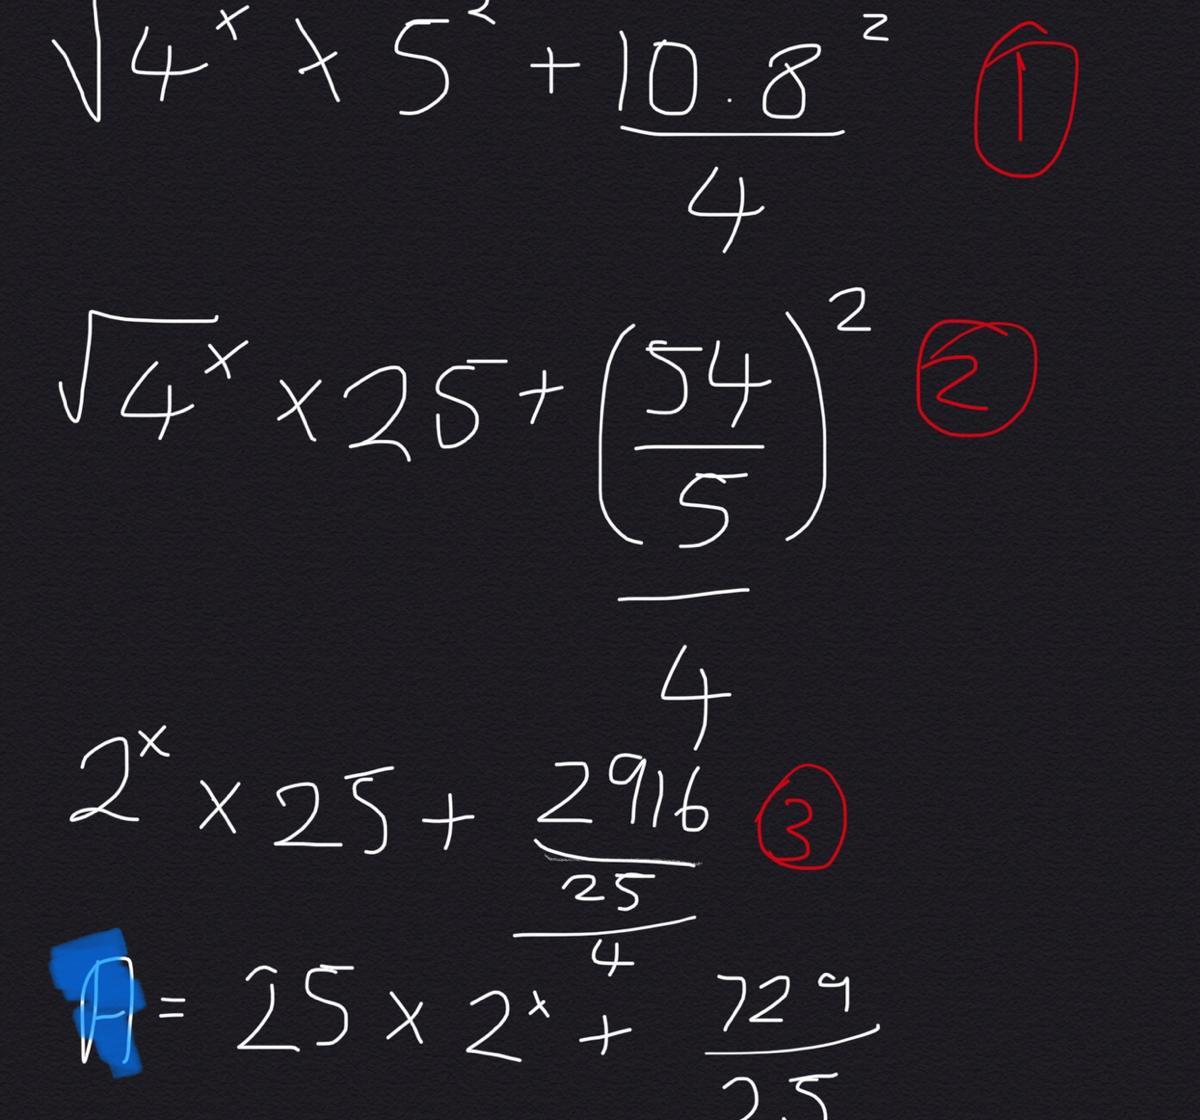 √4ˣ × 5² + 10.8² ①
4
√4ˣ × 25 + (54)² ②
5
4
2ˣ × 25 + 2916 ③
25
4
A = 25 × 2ˣ + 729
25